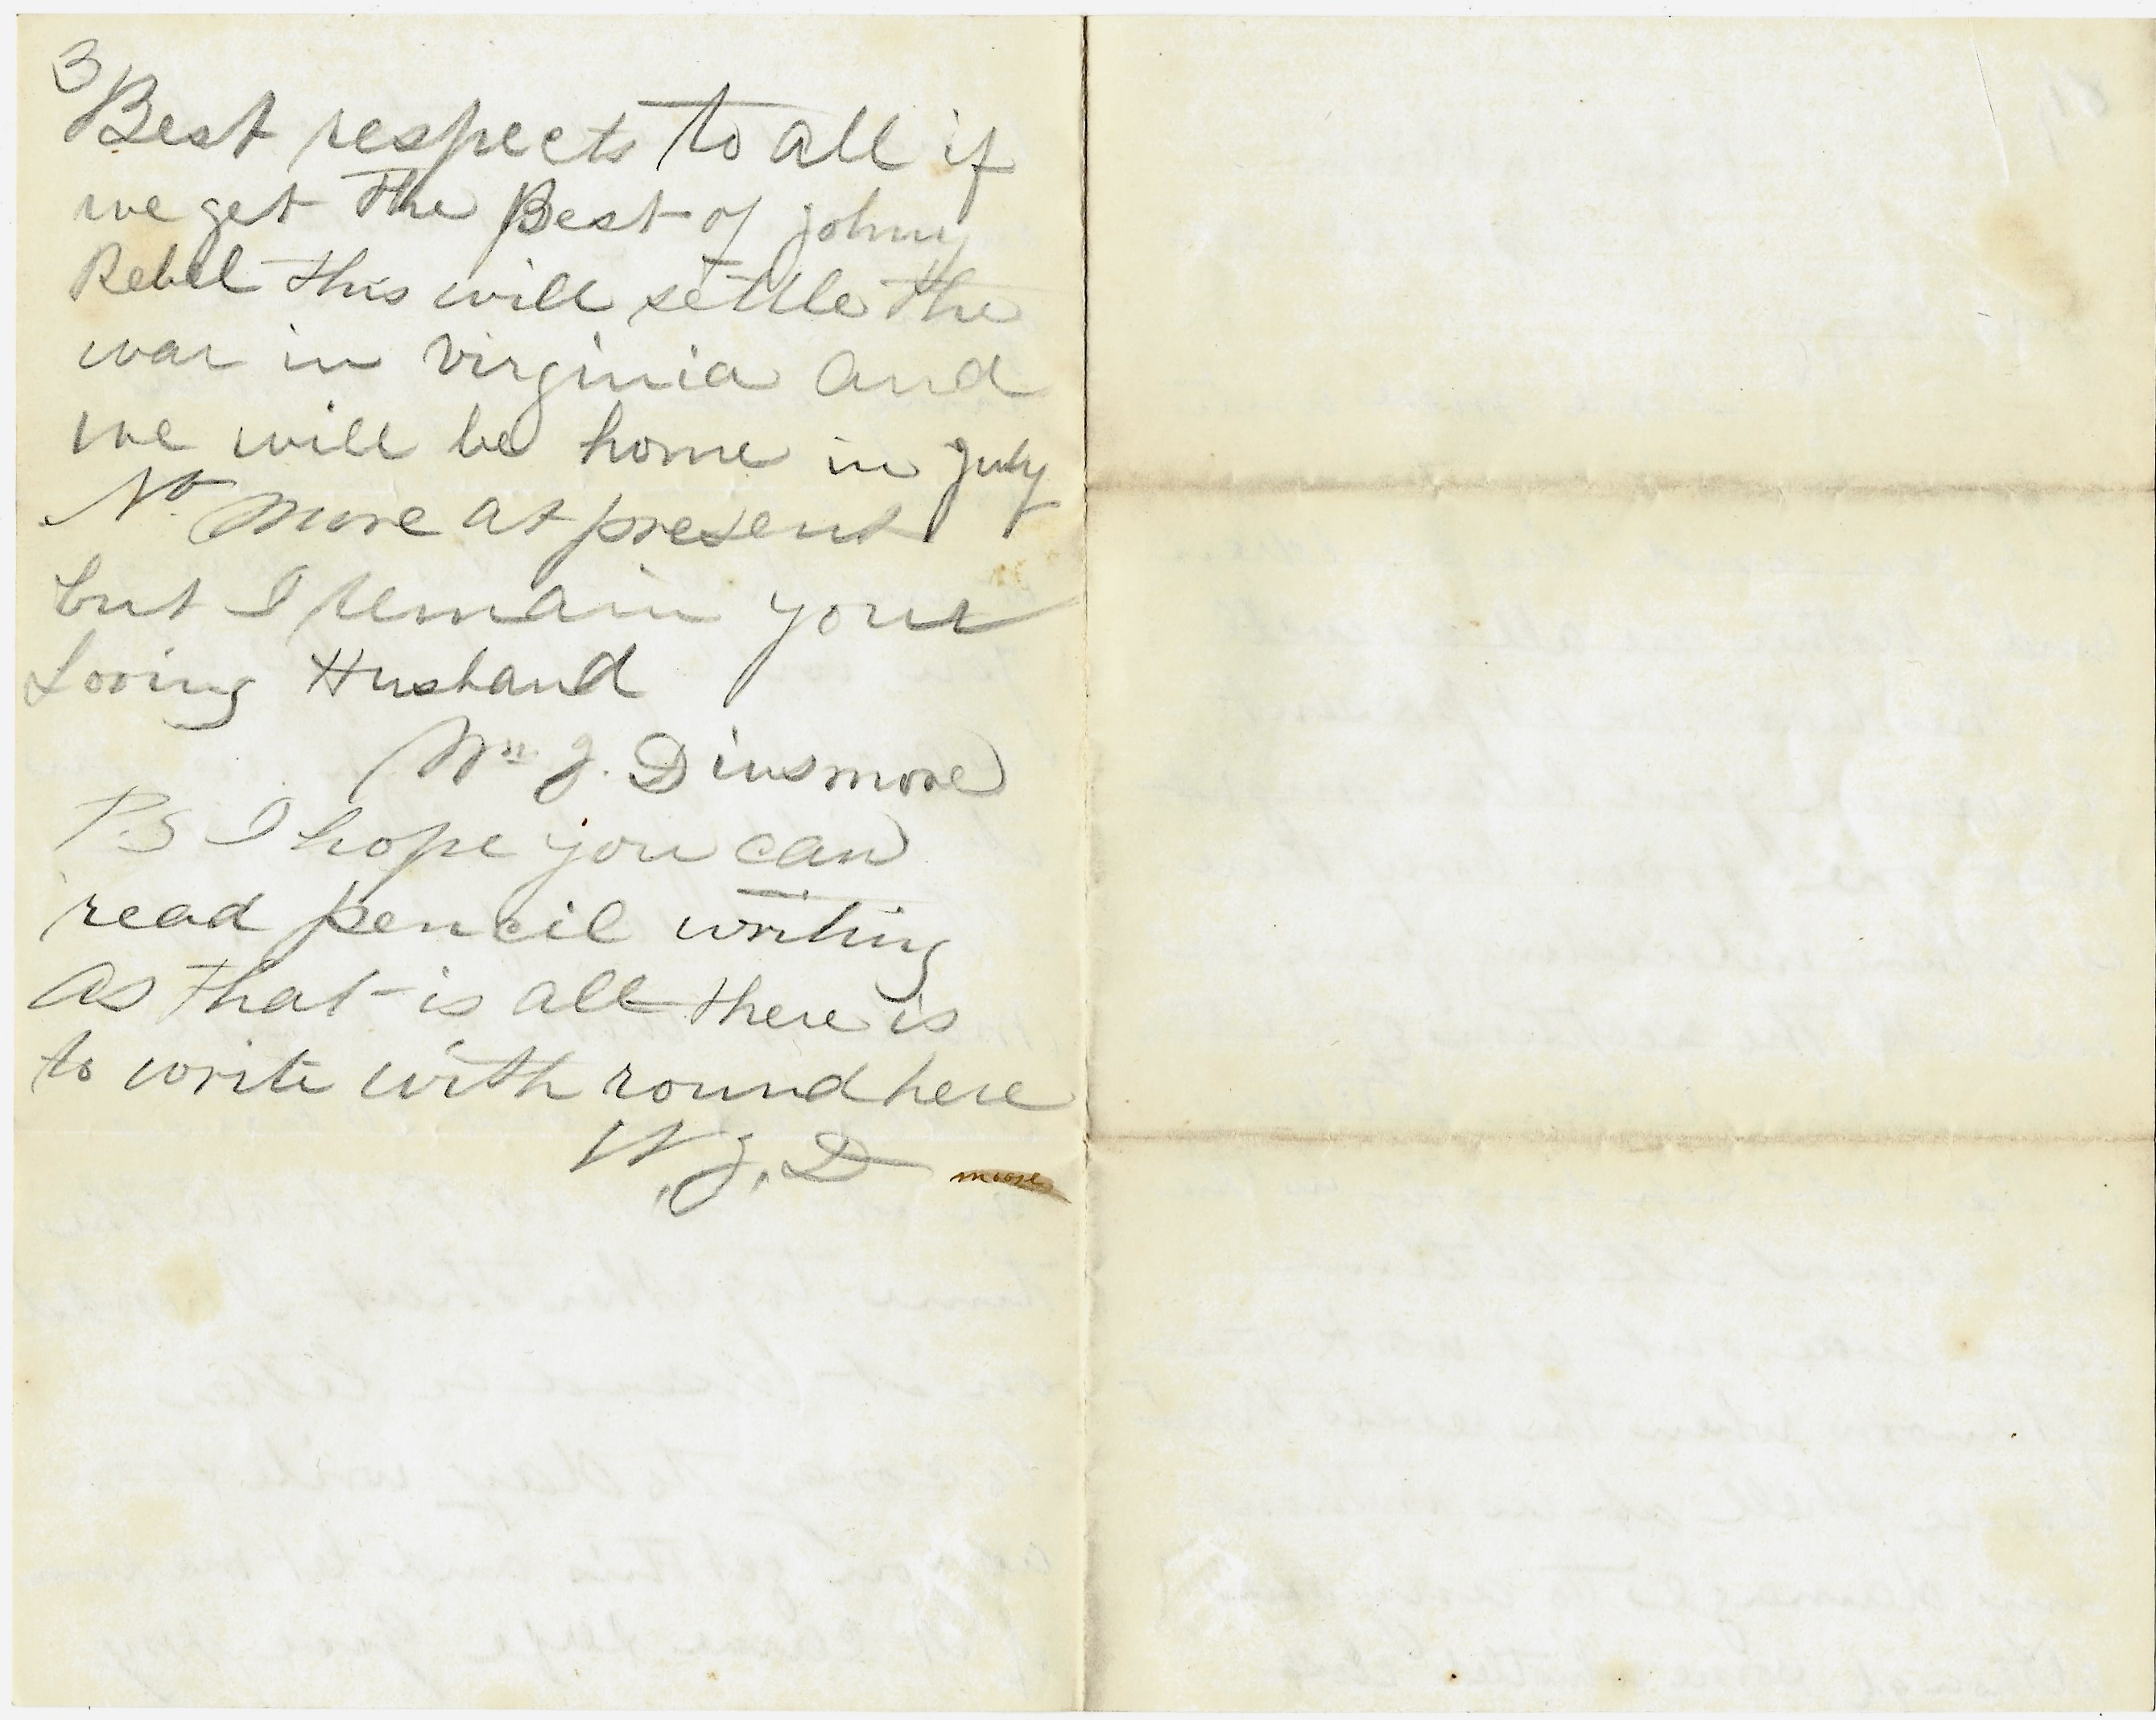 3
Best respects to all if
we get the Best of johny
Rebel this will settle the
war in virginia and
we will be home in july
No more at present
but I remain your
Loving Husband
Wm J. Dinsmore
P.S I hope you can
read pencil writing
as that is all there is
to write with round here
W. J. D